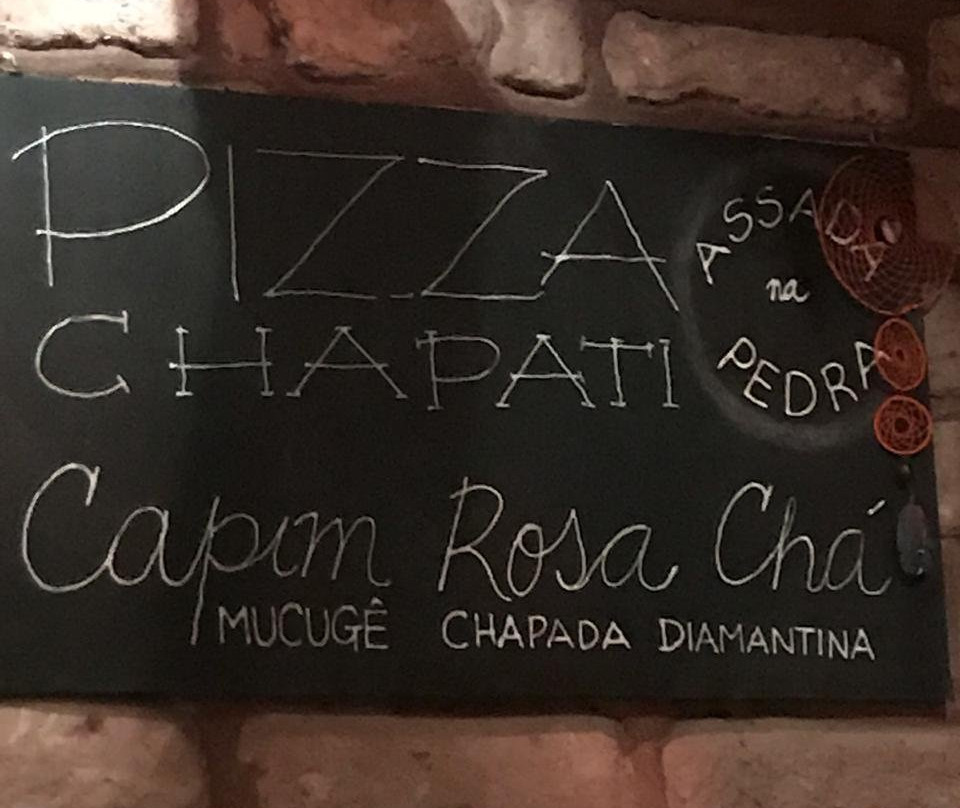 PIZZA
CHAPATI
ASSADA
na
PEDRA
Capim Rosa Chá
MUCUGÊ CHAPADA DIAMANTINA